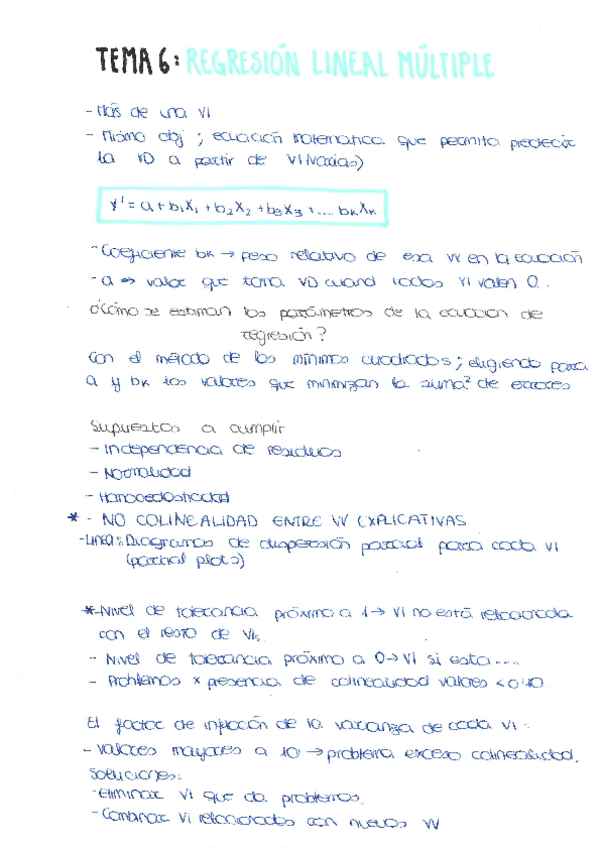 TEMA 6: REGRESIÓN LINEAL MÚLTIPLE
- Más de una VI
- Mismo obj ; ecuación matemática que permita predecir
la VD a partir de VI(varias)
Y' = a + b₁X₁ + b₂X₂ + b₃X₃ + .... bₖXₖ
- Coeficiente bk → peso relativo de esa VV en la ecuación
- a → valor que toma VD cuand todos VI valen 0.
¿Cómo se estiman los parámetros de la ecuación de
regresión?
Con el método de los mínimos cuadrados; eligiendo para
a y bk los valores que minimizan la suma² de errores
Supuestos a cumplir
- Independencia de residuos
- Normalidad
- Homocedasticidad
* - NO COLINEALIDAD ENTRE VV EXPLICATIVAS
- Linea: Diagramas de dispersión parcial para cada VI
(partial plots)
*- Nivel de tolerancia próximo a 1 → VI no está relacionada
con el resto de VIs.
- Nivel de tolerancia próximo a 0 → VI si esta ....
- Problemas x presencia de colinealidad valores < 0'10
El factor de inflación de la varianza de cada VI:
- Valores mayores a 10 → problema exceso colinealidad.
Soluciones:
- Eliminar VI que da problemas.
- Combinar VI relacionadas con nuevas VV